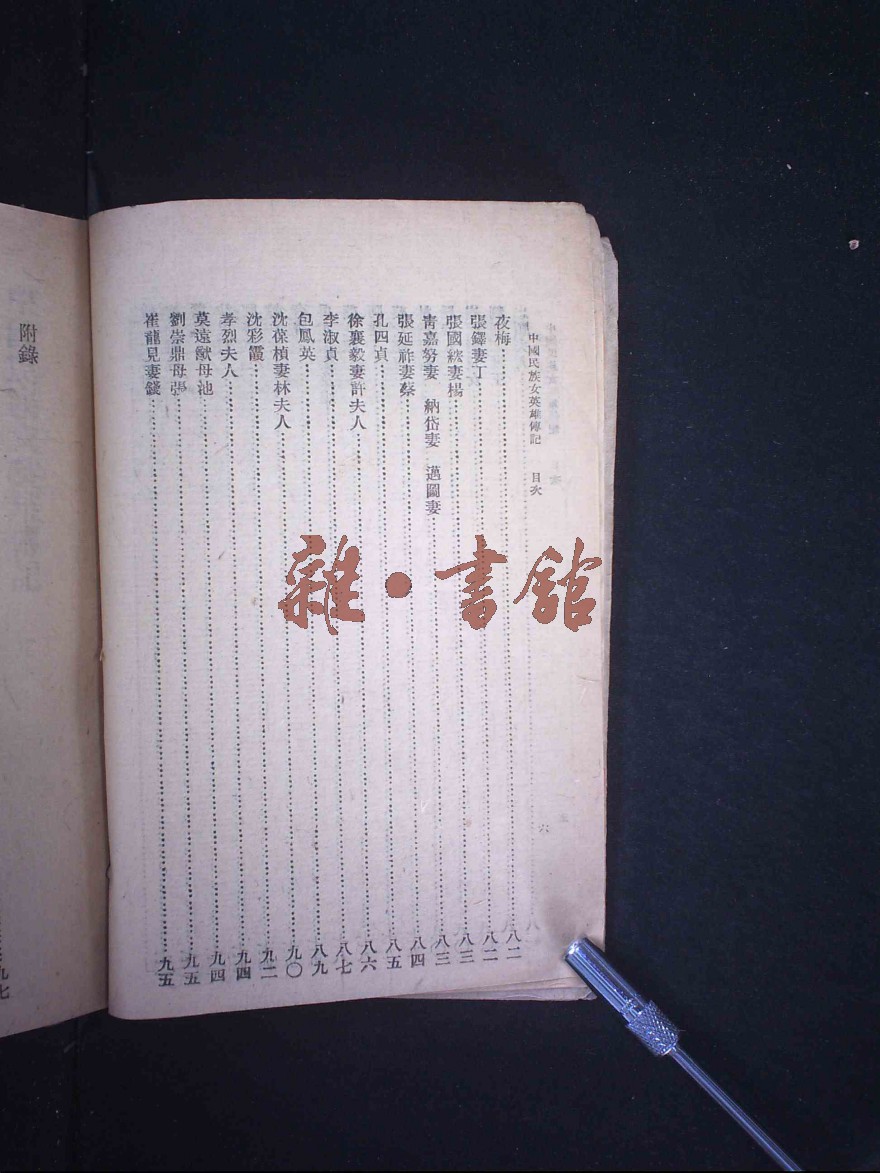 中國民族女英雄傳記　目次
六
夜梅……八二
張鐸妻丁……八二
張國妻楊……八三
青嘉努妻　納岱妻　邁圖妻……八三
張延祚妻蔡……八四
孔四貞……八五
徐襄毅妻許夫人……八六
李淑貞……八七
包鳳英……八九
沈葆楨妻林夫人……九〇
沈彩霞……九二
孝烈夫人……九四
莫遠猷母池……九四
劉崇鼎母張……九五
崔龍見妻錢……九五
附錄
九七
雜·書館